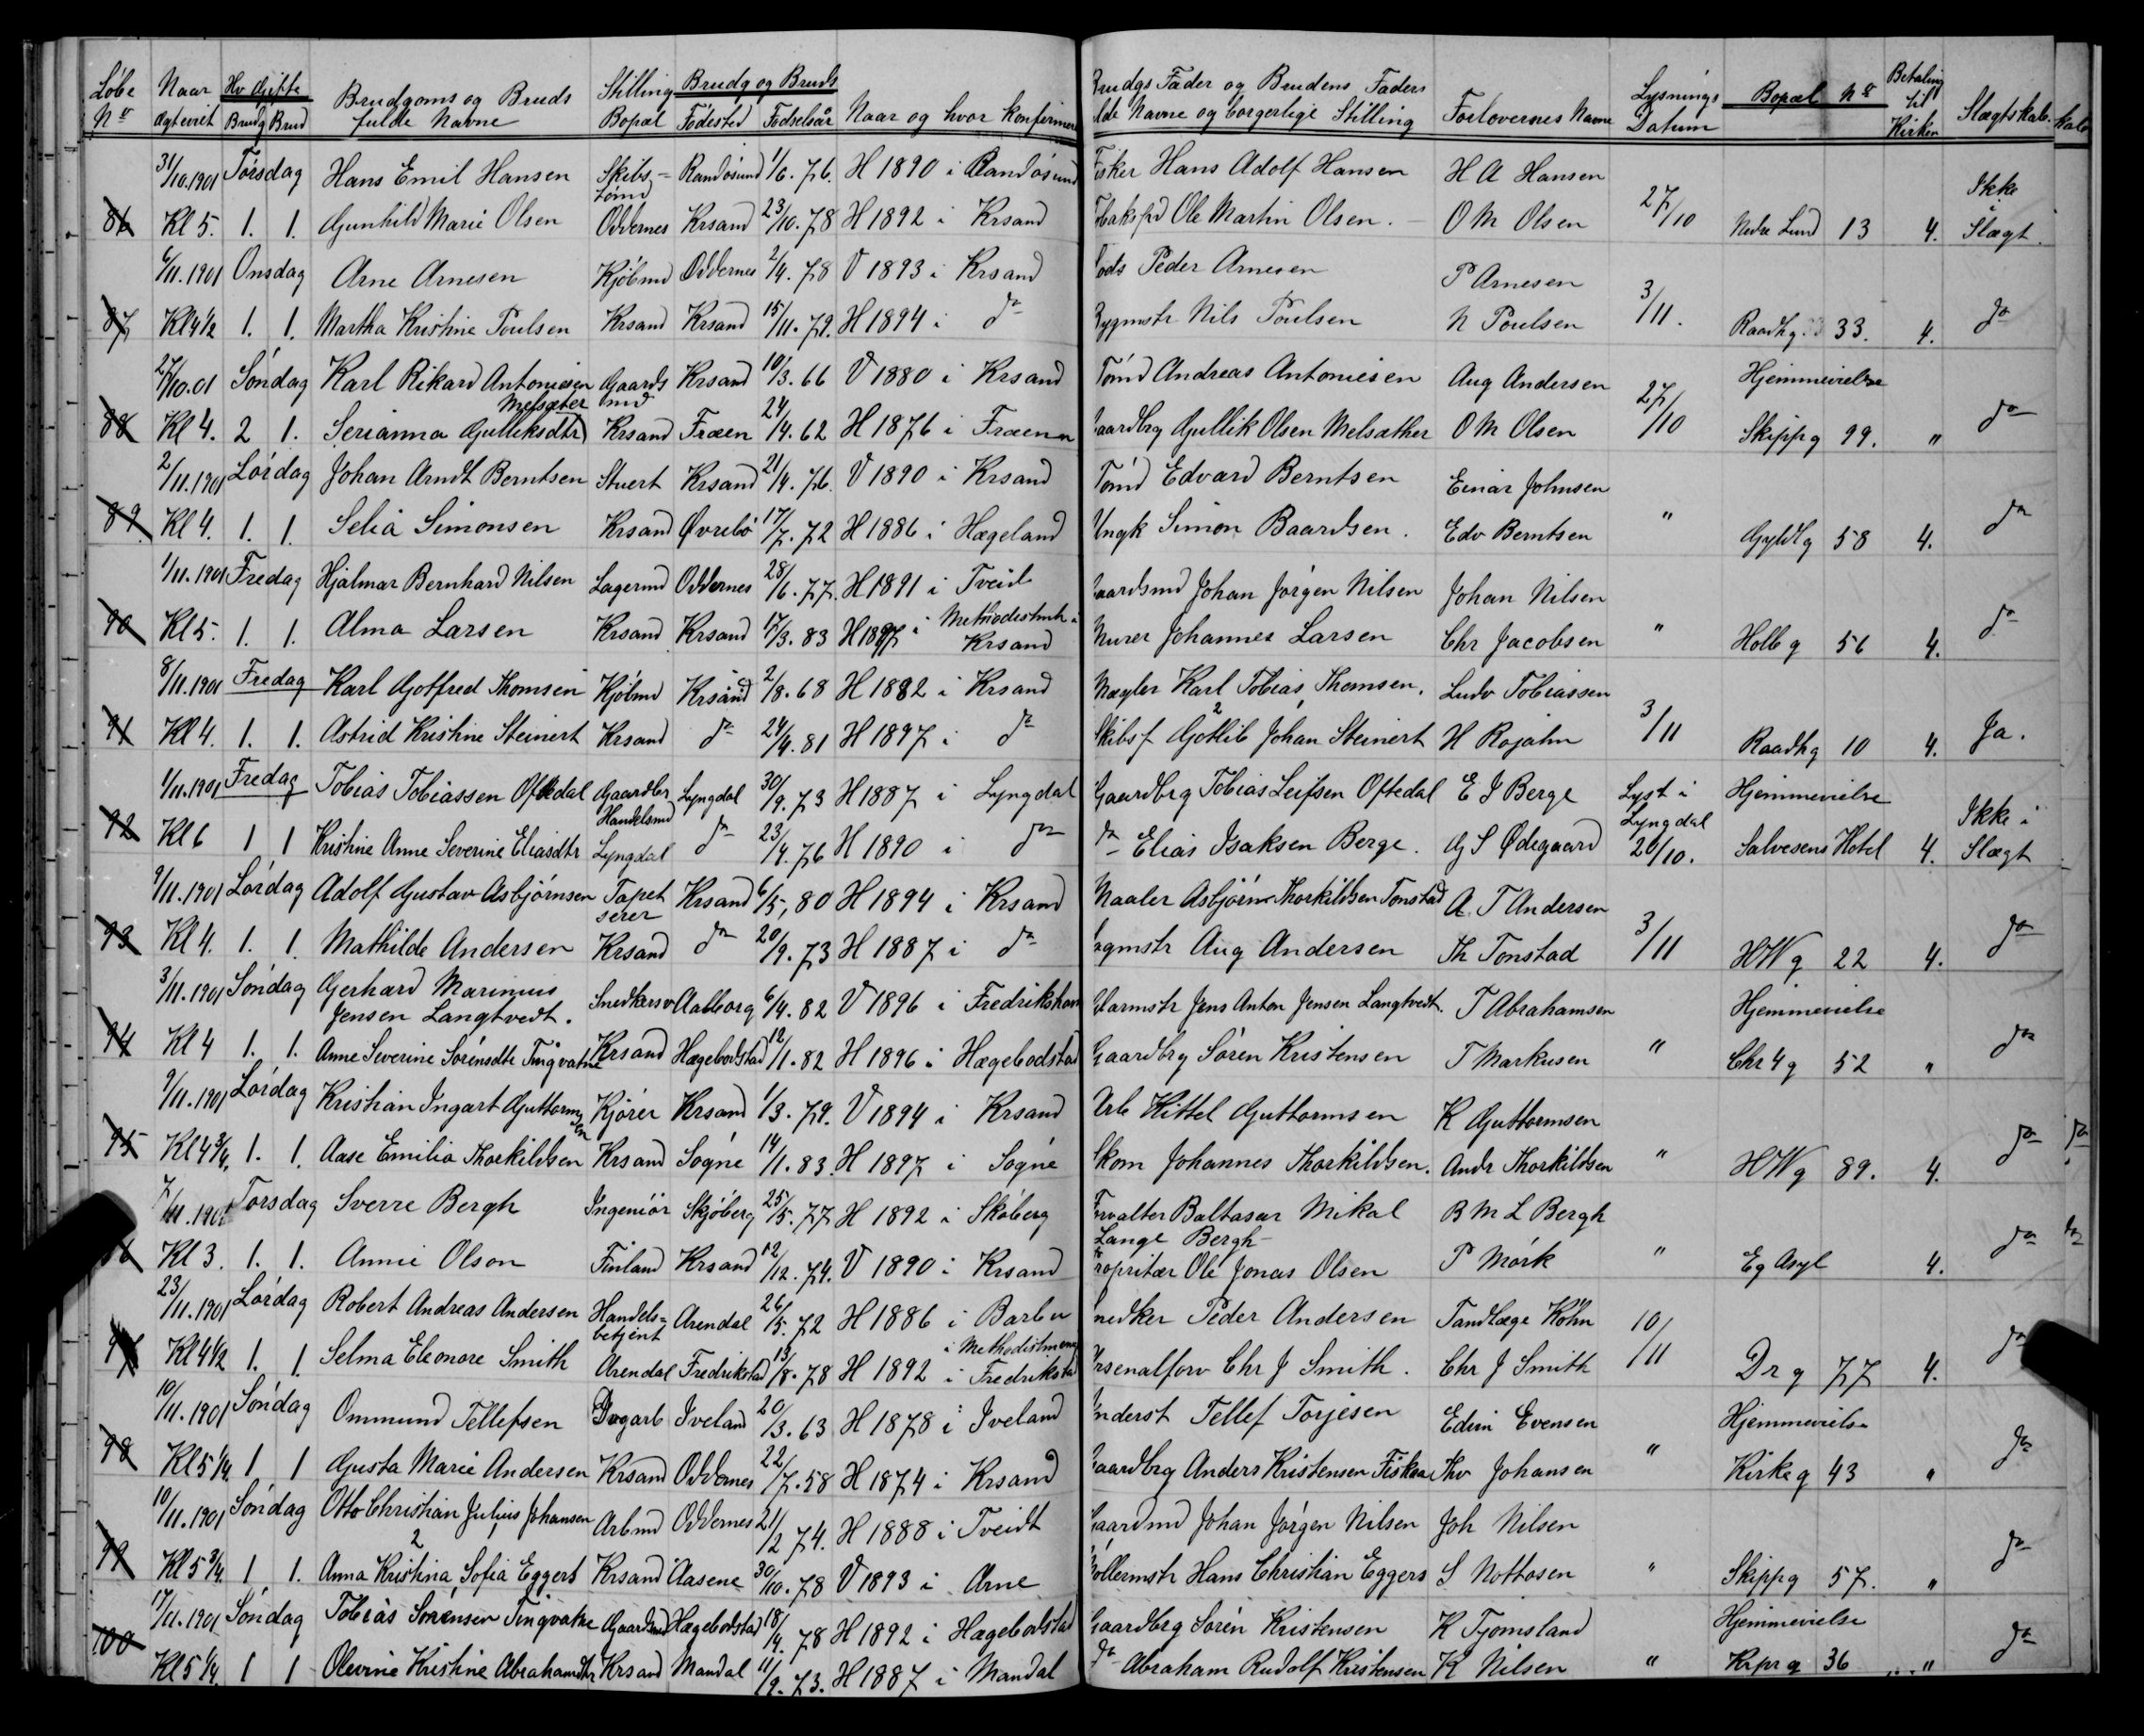 Løbe Naar Hv Gifte Brudgoms og Bruds Stilling Brudg og Bruds Naar og hvor Konfirmere Brudgs Fader og Brudens Faders Forlovernes Navne Lysnings Bopæl No Betaling til Kirken Slægtskab
No Ægteviet Brudg Brud fulde Navne Bopæl Fødested Fødselsår lde Navne og borgerlige Stilling Datum
31/10.1901 Torsdag Hans Emil Hansen Skibs-tømd Randøsund 1/6.76. H 1890 i Randøsund Fisker Hans Adolf Hansen H A Hansen
86 Kl 5. 1. 1. Gunhild Marie Olsen Oddernes Krsand 23/10.78 H 1892 i Krsand Ole Martin Olsen. O M Olsen 27/10 Nedre Lund 13 4. Ikke i Slægt.
6/11.1901 Onsdag Arne Arnesen Kjøbmd Oddernes 2/4.78 V 1893 i Krsand Peder Arnesen P Arnesen
87 Kl 4½ 1. 1. Martha Kristine Poulsen Krsand Krsand 15/11.79. H 1894 i do Bygmstr Nils Poulsen N Poulsen 3/11. Raadhg. 33. 4. do
27/10.01 Søndag Karl Rikard Antoniesen Gaards md Krsand 10/3.66 V 1880 i Krsand Tømd Andreas Antoniesen Aug Andersen Hjemmevielse
88 Kl 4. 2 1. Serianna Gulliksdtr Melsæter Krsand Fræen 24/4.62 H 1876 i Fræen Gaardbrg Gullik Olsen Melsæther O M Olsen 27/10 Skippg 99. " do
2/11.1901 Lørdag Johan Arndt Berntsen Stuert Krsand 21/4.76. V 1890 i Krsand Tømd Edvard Berntsen Einar Johnsen
89. Kl 4. 1. 1. Selia Simonsen Krsand Øvrebø 17/7.72 H 1886 i Hægeland Ungk Simon Baardsen. Edv Berntsen " Gyldlg 58 4. do
1/11.1901 Fredag Hjalmar Bernhard Nilsen Lagermd Oddernes 28/6.77. H 1891 i Tveid Gaardsmd Johan Jørgen Nilsen Johan Nilsen
90 Kl 5. 1. 1. Alma Larsen Krsand Krsand 17/3.83 H 1897 i Krsand Murer Johannes Larsen Chr Jacobsen " Holbg 56 4. do
8/11.1901 Fredag Karl Gotfred Thomsen Kjøbmd Krsand 2/8.68 H 1882 i Krsand Mægler Karl Tobias Thomsen. Ludv Tobiassen
91 Kl 4. 1. 1. Astrid Kristine Steinert Krsand do 24/4.81 H 1897 i do Skibsf Gotlib Johan Steinert H Rojahn 3/11 Raadhg 10 4. Ja.
1/11.1901 Fredag Tobias Tobiassen Oftedal Gaardbr Handelsmd Lyngdal 30/9.73 H 1887 i Lyngdal Gaardbrg Tobias Leifsen Oftedal E I Berge Lyst i Hjemmevielse
92 Kl 6 1 1 Kristine Anne Severine Eliasdtr Lyngdal do 23/4.76 H 1890 i do do Elias Isaksen Berge. G S Ødegaard Lyngdal 20/10. Salvesens Hotel 4. Ikke i Slægt
9/11.1901 Lørdag Adolf Gustav Asbjørnsen Tapetserer Krsand 6/5,80 H 1894 i Krsand Maaler Asbjørn Thorkildsen Tonstad A. T Andersen
93 Kl 4. 1. 1. Mathilde Andersen Krsand do 20/9.73 H 1887 i do Aug Andersen Th Tonstad 3/11 HWg 22 4. do
3/11.1901 Søndag Gerhard Marinius Jensen Langtvedt. Snedkersv Aalborg 6/4.82 V 1896 i Frederikshavn Jens Anton Jensen Langtvedt. T Abrahamsen Hjemmevielse
94 Kl 4 1. 1. Anne Severine Sørensdtr Tingvatne Krsand Hægebodstad 12/11.82 H 1896 i Hægebodstad Gaardbrg Søren Kristensen T Markusen " Chr 4 g 52 " do
9/11.1901 Lørdag Kristian Ingart Guttormsen Kjører Krsand 1/3.79. V 1894 i Krsand Arb Kittel Guttormsen K Guttormsen
95 Kl 4¾. 1. 1. Aase Emilie Thorkildsen Krsand Søgne 14/11.83. H 1897 i Søgne Skom Johannes Thorkildsen. Andr Thorkildsen " HWg 89. 4. do
7/11.1901 Torsdag Sverre Bergh Ingeniør Skjøberg 25/5.77 H 1892 i Skøberg Forvalter Baltasar Mikal Lange Bergh B M L Bergh
96 Kl 3. 1. 1. Annie Olson Finland Krsand 12/12.74. V 1890 i Krsand Propritær Ole Jonas Olsen P Mørk " Eg Asyl 4. do
23/11.1901 Lørdag Robert Andreas Andersen Handels-betjent Arendal 26/5.72 H 1886 i Barbu Snedker Peder Andersen Tandlæge Køhn
97 Kl 4½ 1. 1. Selma Eleonore Smith Arendal Fredrikstad 13/8.78 H 1892 i Methodistmen i Fredrikstad Arsenalforv Chr J Smith. Chr J Smith 10/11 Drg 77 4. do
10/11.1901 Søndag Ommund Tellefsen Dagarb Iveland 20/3.63 H 1878 i Iveland Inderst Tellef Torjesen Edvin Evensen Hjemmevielse
98 Kl 5¼. 1 1 Gusta Marie Andersen Krsand Oddernes 22/7.58 H 1874 i Krsand Gaardbrg Anders Kristensen Fiskaa Thv Johansen " Kirkeg 43 " do
10/11.1901 Søndag Otto Christian Julius Johansen Arbmd Oddernes 21/2 74. H 1888 i Tveidt Gaardmd Johan Jørgen Nilsen Joh Nilsen
99 Kl 5¾. 1. 1. Anna Kristina Sofia Eggers Krsand Aasene 30/10.78 V 1893 i Arne Møllermstr Hans Christian Eggers S Nottosen " Skippg 57. " do
17/11.1901 Søndag Tobias Sørensen Tingvatne Gaardmd Hægebodstad 18/4.78 H 1892 i Hægebodstad Gaardbrg Søren Kristensen K Tjomsland Hjemmevielse
100 Kl 5¼. 1 1 Olevine Kristine Abrahamdtr Krsand Mandal 11/9.73. H 1887 i Mandal do Abraham Rudolf Kristensen K Nilsen " Krprg 36 " do